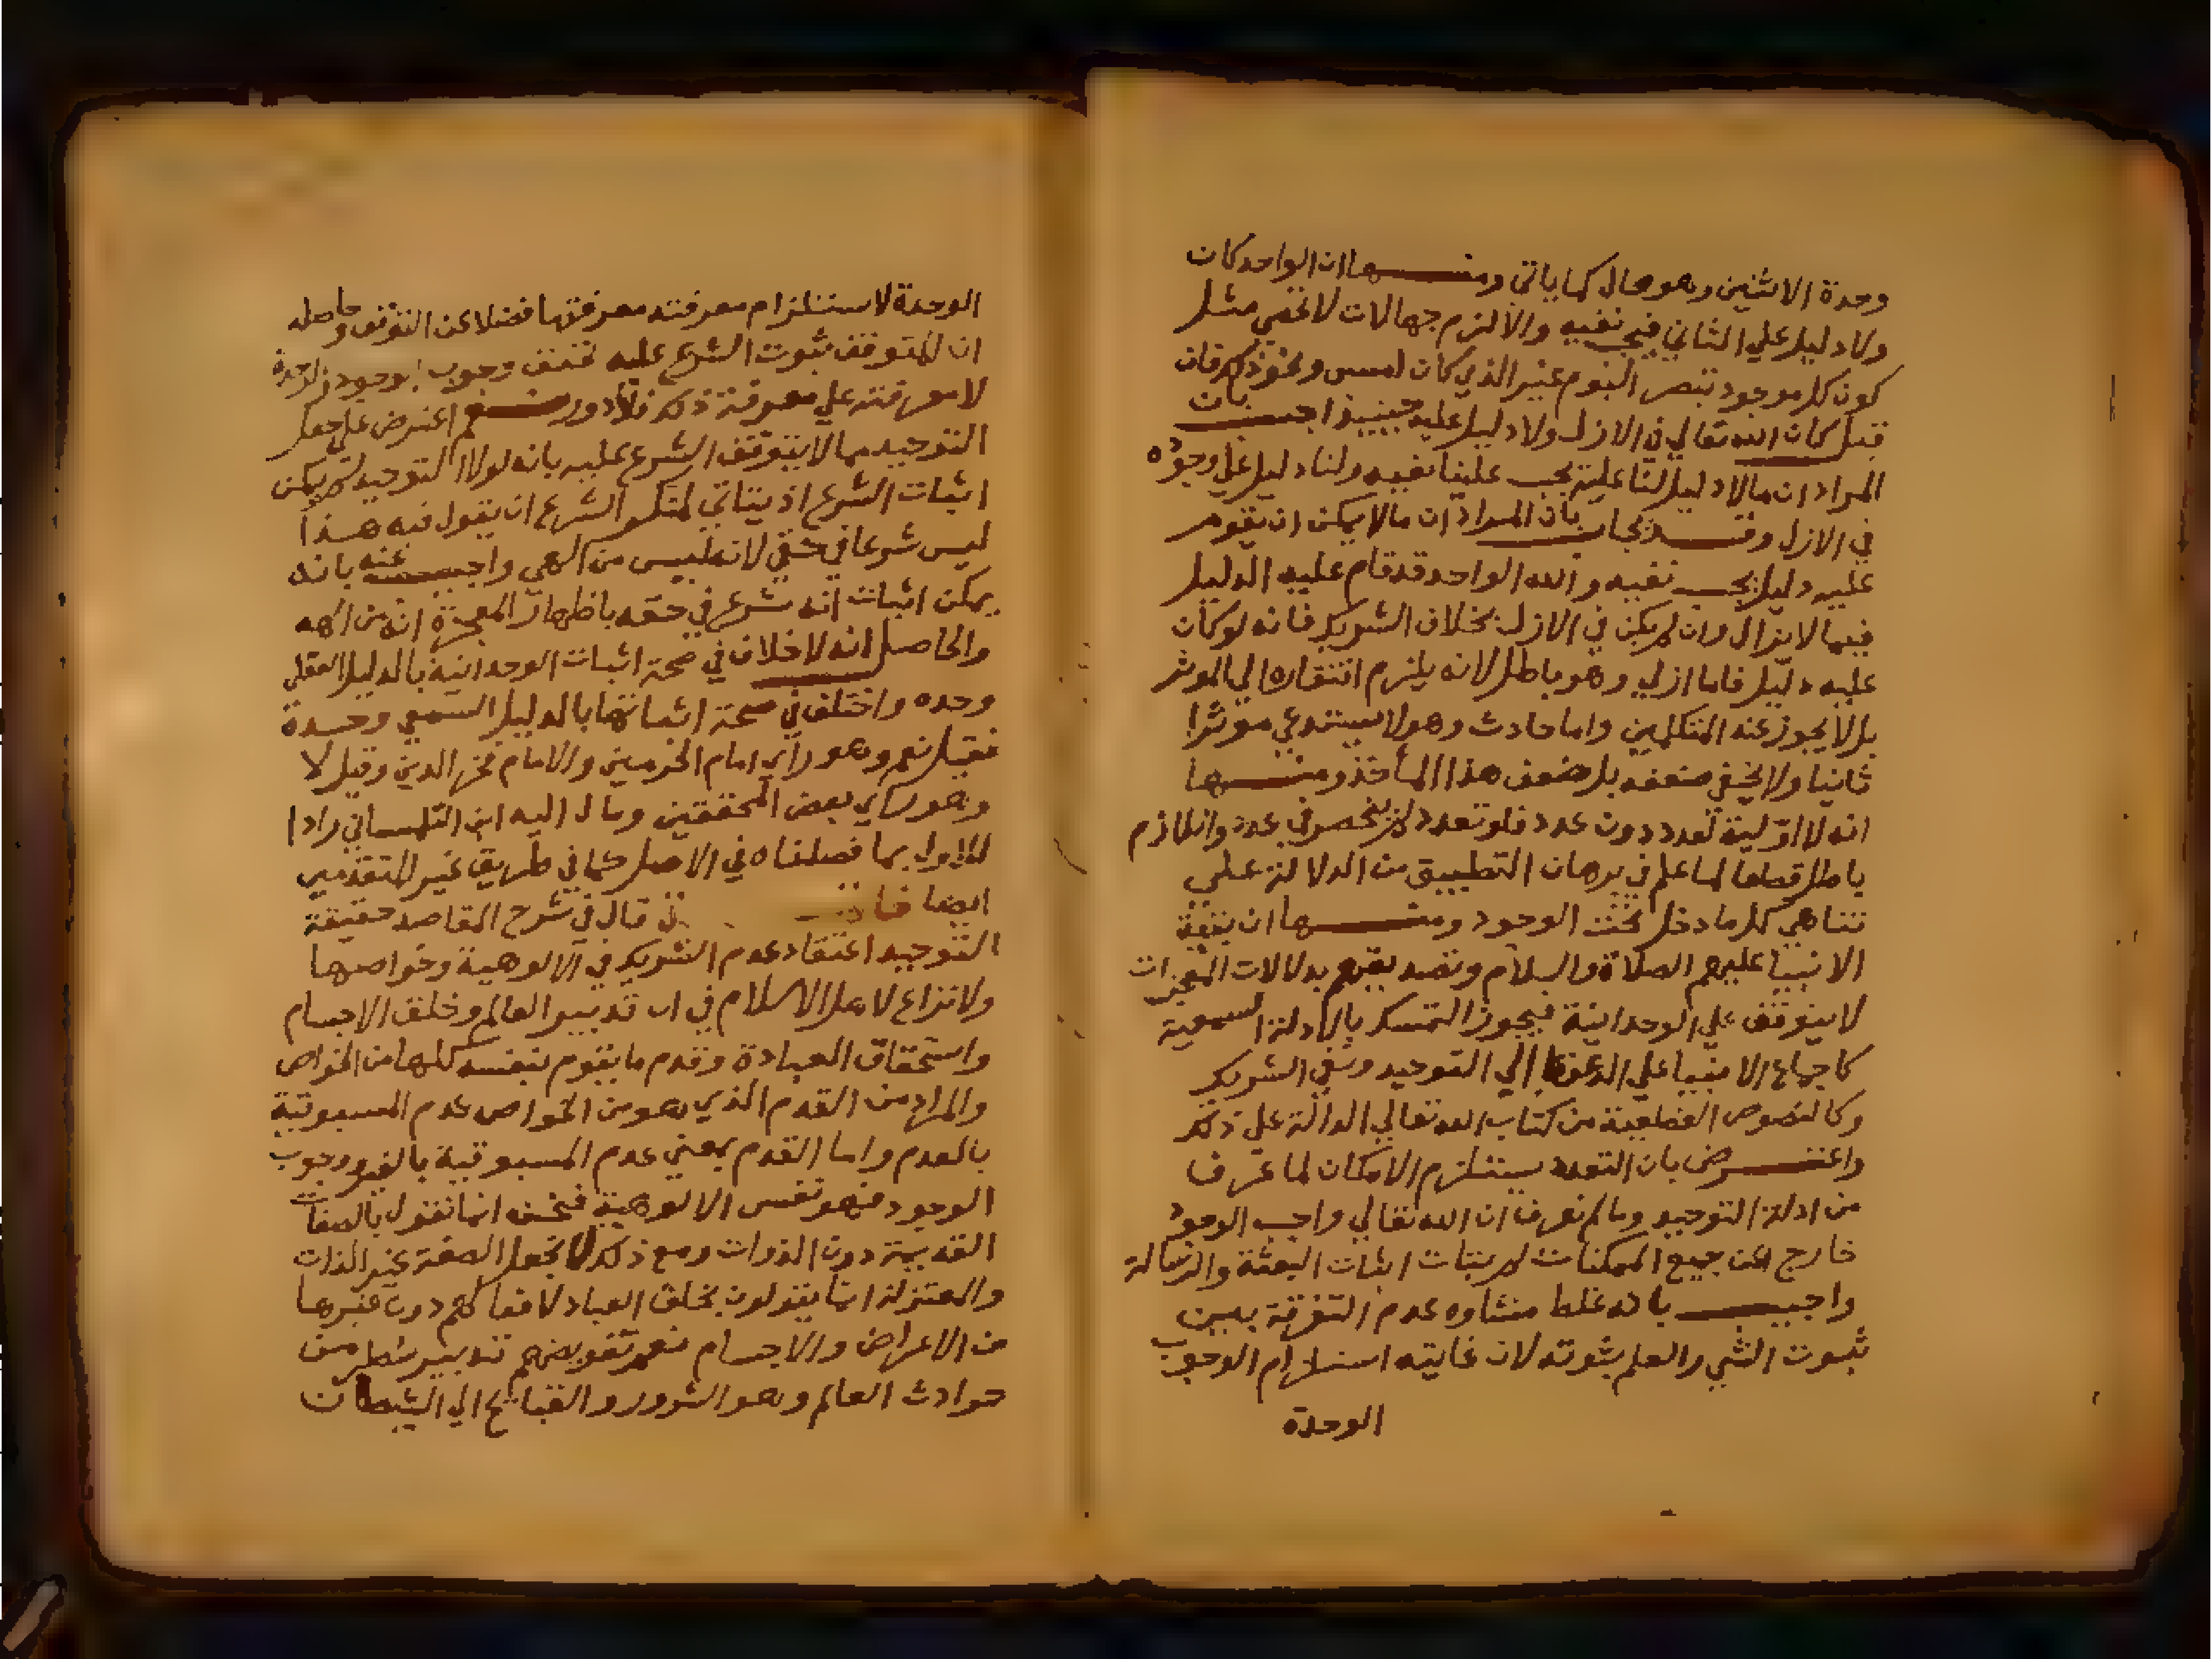 وحدة الاثنين وهو محال كما ياتي ومنها ان الواحد كان
ولا دليل علي الثاني فيجب نفيه والا لزم جهالات لا تخفي مثل
كون كل موجود تبصر اليوم غير الذي كان امس ونحو ذلك فان
قيل كان الله تعالي في الازل ولا دليل عليه حينيذ اجيب بان
المراد ان ما لا دليل لنا عليه يجب علينا نفيه ولنا دليل علي وجوده
في الازل وقد يجاب بان المراد ان ما لا يمكن ان يقوم
عليه دليل يجب نفيه والله الواحد قد قام عليه الدليل
فيما لا يزال وان لم يكن في الازل بخلاف الشريك فانه لو كان
عليه دليل فاما ازلي وهو باطل لانه يلزم افتقاره الي الموثر
بل لا يجوز عند المتكلمين واما حادث وهو لا يستدعي موثرا
ثانيا ولا يخفي ضعفه بل ضعف هذا المأخذ ومنها
انه لا اوّلية لعدد دون عدد فلو تعدد لم ينحصر في عدد واللازم
باطل قطعا لما علم في برهان التطبيق من الدلالة علي
تناهي كل ما دخل تحت الوجود ومنها ان بعثة
الانبيا عليهم الصلاة والسلام وتصديقهم بدلالات المعجزات
لا يتوقف علي الوحدانية فيجوز التمسك بالادلة السمعية
كاجماع الانبيا علي الدعوة الي التوحيد ونفي الشريك
وكالنصوص القطعية من كتاب الله تعالي الدالة علي ذلك
واعترض بان التعدد يستلزم الامكان لما عرف
من ادلة التوحيد وما لم نعرف ان الله تعالي واجب الوجود
خارج عن جميع الممكنات لم يتات اثبات البعثة والرسالة
واجيب بانه غلط منشاوه عدم التفرقة بين
ثبوت الشي والعلم بثبوته لان غايته استلزام الوجوب
الوحدة
الوحدة لا ستلزام معرفته معرفتها فضلا عن التوقف وحاصله
ان المتوقف ثبوت الشرع عليه وجوب الوجود
لا معرفته علي معرفة ذلك فلا دور نعم اعترض علي جعل
التوحيد مما لا يتوقف الشرع عليه بانه لولا التوحيد لم يمكن
اثبات الشرع اذ يتاتي لمنكر الشرع ان يقول فيه هذا
ليس شرعا في حقي لانه ليس من الهي واجيب عنه بانه
يمكن اثبات انه شرع في حقه باظهار المعجزة انه من الهه
والحاصل انه لا خلاف في صحة اثبات الوحدانية بالدليل العقلي
وحده واختلف في صحة اثباتها بالدليل السمعي وحده
فقيل نعم وهو رأي امام الحرمين والامام فخر الدين وقيل لا
وهو راي بعض المحققين ومال اليه ابن التلمساني رادا
للاول بما فصلناه في الاصل كما في طريق غير المتقدمين
ايضا قال في شرح المقاصد حقيقة
التوحيد اعتقاد عدم الشريك في الالوهية وخواصها
ولا نزاع لاهل الاسلام في ان تدبير العالم وخلق الاجسام
واستحقاق العبادة وقدم ما يقوم بنفسه كلها من الخواص
والمراد من القدم الذي هو من الخواص عدم المسبوقية
بالعدم واما القدم بمعني عدم المسبوقية بالغير ووجوب
الوجود فهو نفس الالوهية فنحن انما نقول بالصفات
القديمة دون الذوات ومع ذلك لا نجعل الصفة غير الذات
والمعتزلة انما يقولون بخلق العباد لافعالهم دون غيرها
من الاعراض والاجسام نعم تفويضهم تدبير شطر من
حوادث العالم وهو الشرور والقبائح الي الشيطان